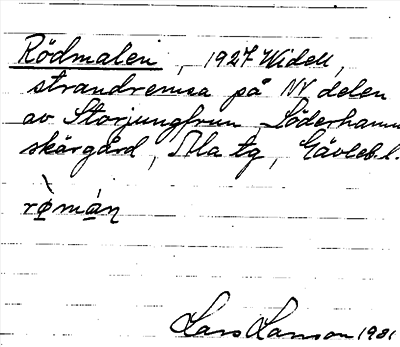 Rödmalen, 1927 Widell,
strandremsa på NV delen
av Storjungfrun Söderhamns
skärgård, Ala tg, Gävleb. l.
rø̀mán
Lars Larsson 1981